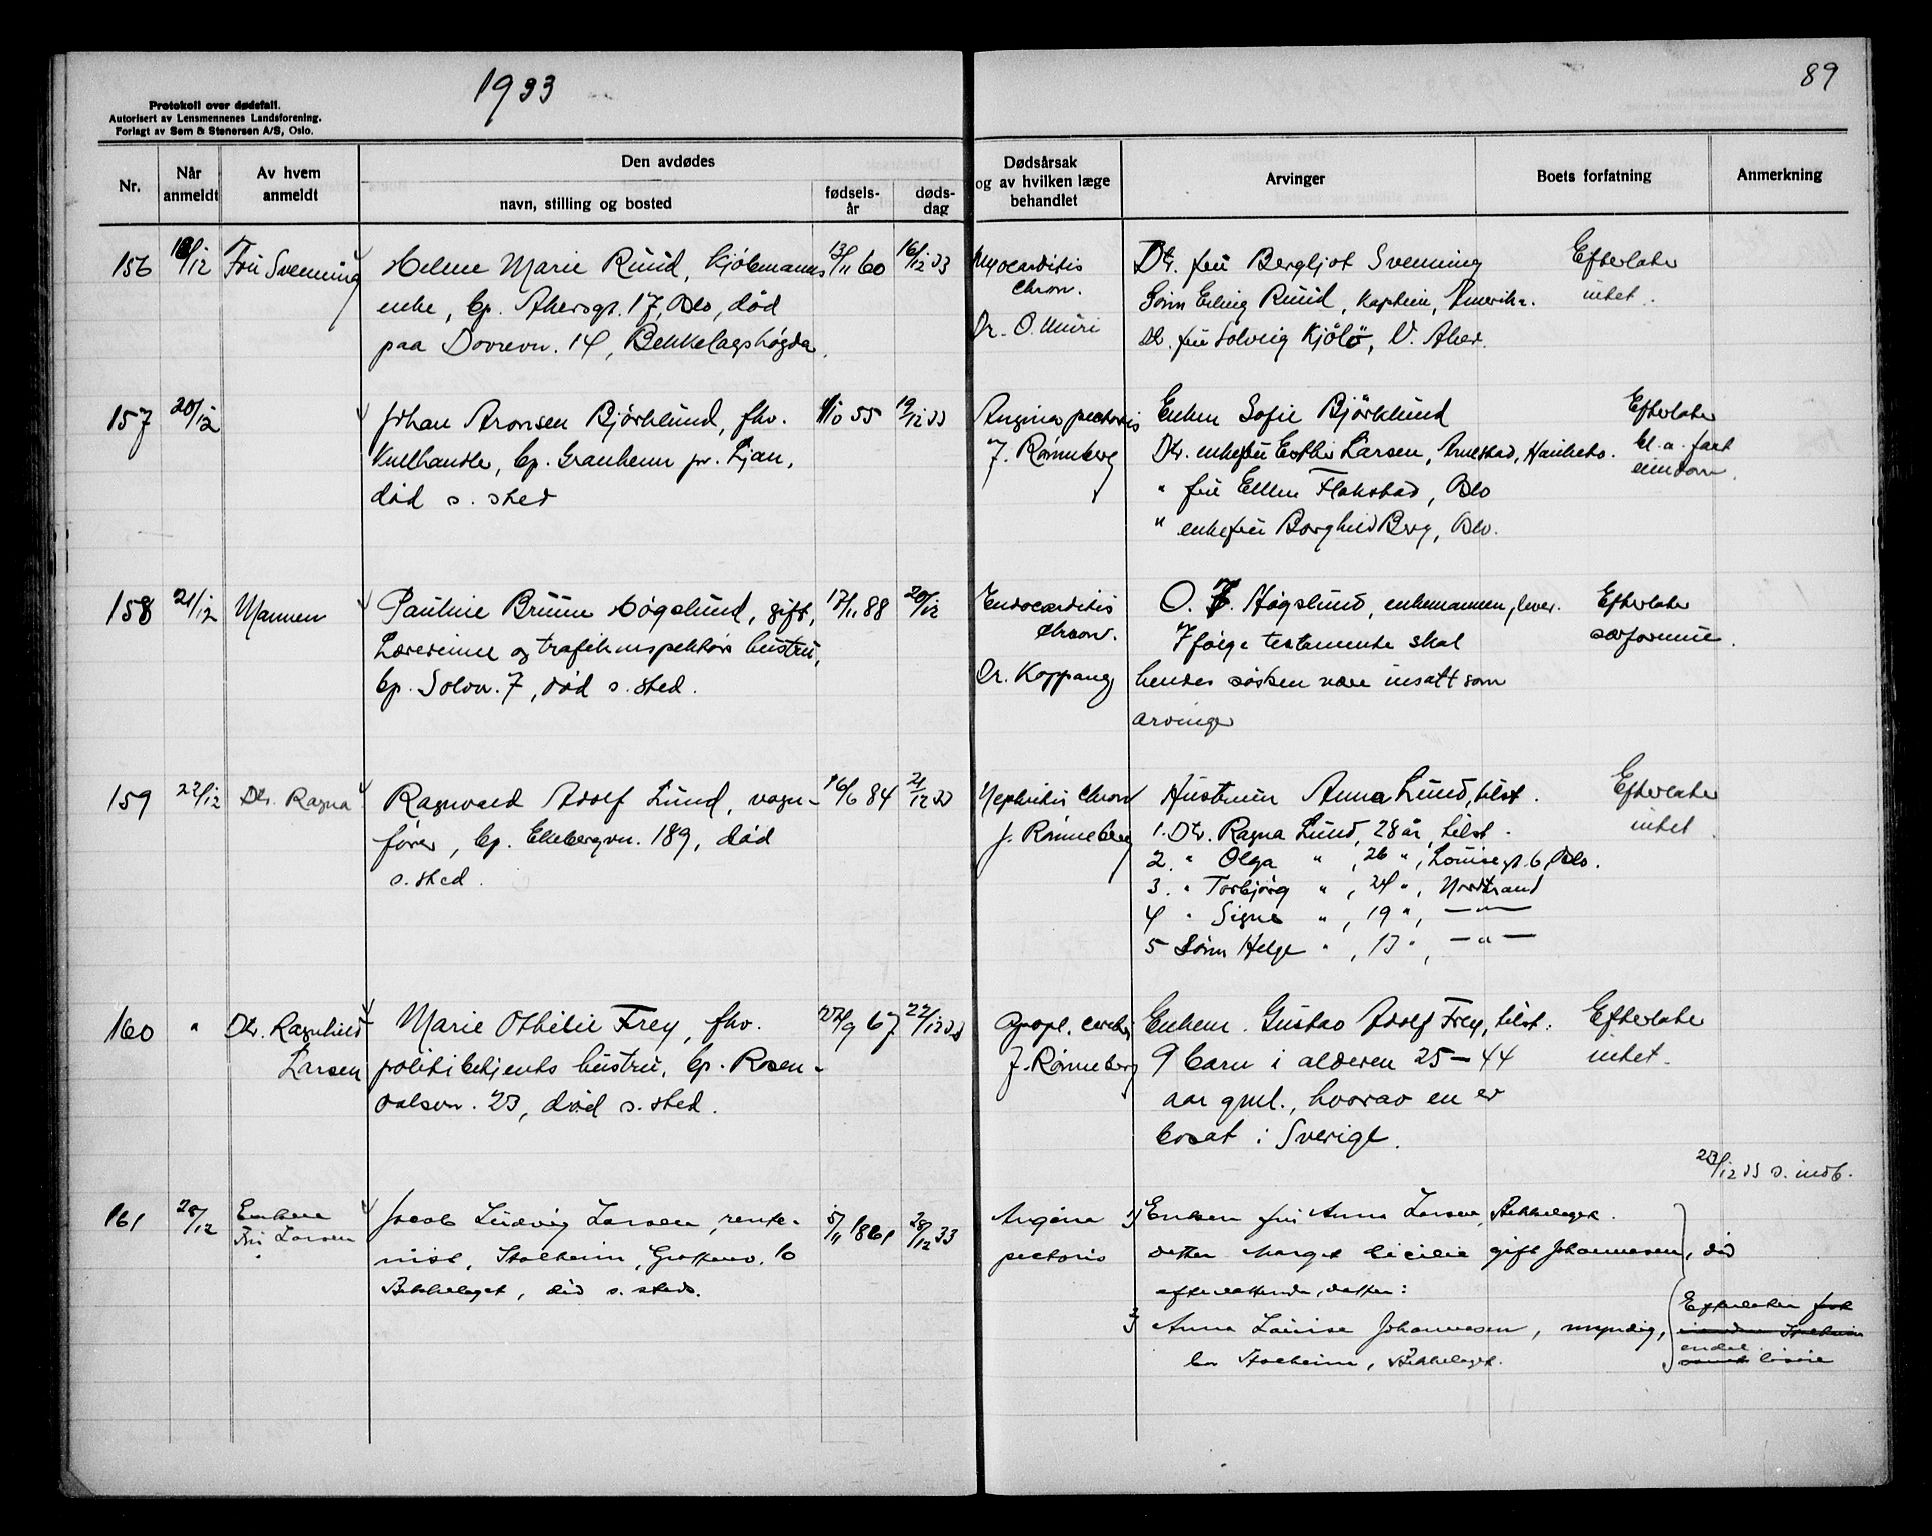 1933
89
Protokoll over dødsfall.
Autorisert av Lensmennenes Landsforening.
Forlagt av Sem & Stenersen A/S, Oslo.
Nr.
Når anmeldt
Av hvem anmeldt
Den avdødes
navn, stilling og bosted
fødsels-år
døds-dag
Dødsårsak og av hvilken læge behandlet
Arvinger
Boets forfatning
Anmerkning
156 18/12 Fru Svenning Helene Marie Ruud, Kjøbmanns 13/11 60 16/12 33 Myocarditis Dtr. fru Bergljot Svenning Efterlater
enke, bp. Akersgt. 17, Oslo, død chron. Sønn Erling Ruud, kaptein, Amerika. intet.
paa Dovrevn. 14, Bekkelagshøgda. Dr. O. Muri Dtr. fru Solveig Kjölö, V. Aker.
157 20/12 Johan Aronsen Björklund, fhv. 1/10 55 19/12 33 Angina pectoris Enken Sofie Björklund Efterlater
kullhandler, bp. Granheim pr. Ljan, J. Rønneberg Dtr. enkefru Esther Larsen, Hauketo. bl. a. fast
død s. sted " fru Ellen Flakstad, Oslo eiendom.
" enkefru Borghild Berg, Oslo.
158 21/12 Mannen Pauline Bruun Høgslund, gift, 17/11 88 20/12 Endocarditis O. F. Høgslund, enkemannen, lever. Efterlater
Lærerinne og trafikinspektørs hustru, chron. Ifølge testamente skal særformue.
bp. Solvn. 7, død s. sted. Dr. Koppang hendes søsken være insatt som
arvinger
159 22/12 Dtr. Ragna Ragnvald Adolf Lund, vogn- 16/6 84 21/12 33 Nephritis chron Hustruen Anna Lund, tilst. Efterlater
fører, bp. Ekebergvn. 189, død J. Rønneberg 1. Dtr. Ragna Lund, 28 år, tilst. intet.
s. sted. 2. " Olga " , 26 " , Louisegt. 6 Oslo.
3. " Torbjørg " , 24 " , Nordstrand
4 " Signe " , 19 " , — " —
5 Sønn Helge " , 13 " , — " —
160 " Dtr. Ragnhild Marie Othilie Frey, fhv. 27/9 67 22/12 33 Apopl. cerebri Enkem. Gustav Adolf Frey, tilst. Efterlater
Larsen politibetjents hustru, bp. Rosen- J. Rønneberg 9 barn i alderen 25 — 44 intet.
dalsvn. 23, død s. sted. aar gml., hvorav en er
bosat i Sverige.
23/12 33 s. indb.
161 28/12 Enken Jacob Ludvig Larsen, rente- 5/11 1861 28/12 33 Angina 1) Enken fru Anna Larsen, Bekkelaget.
Fru Larsen nist, Stalheim, 10 pectoris datter Margit Cicilie gift Johannesen, død
Bekkelaget, død s. steds. efterlattende, datter:
2) Anna Louise Johannesen, myndig, Efterlater fast
bor Stalheim, Bekkelaget. endel
samt løsøre